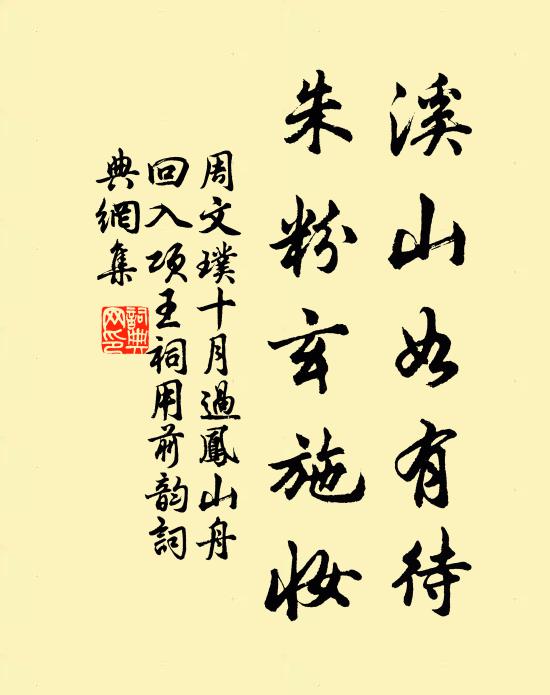 溪山如有待
朱粉玄施妝
周文璞十月過鳳山舟
回入項王祠用前韵詞
典網集
詞典網印